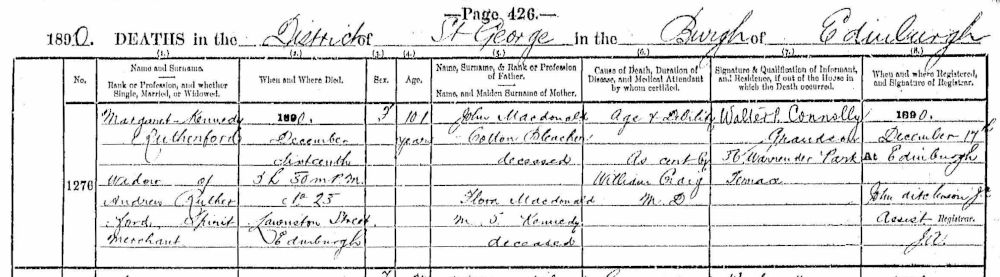 —Page 426.—
1890. DEATHS in the District of St George in the Burgh of Edinburgh
(1.) (2.) (3.) (4.) (5.) (6.) (7.) (8.)
No.
Name and Surname.
Rank or Profession, and whether
Single, Married, or Widowed.
When and Where Died.
Sex.
Age.
Name, Surname, & Rank or Profession
of Father.
Name, and Maiden Surname of Mother.
Cause of Death, Duration of
Disease, and Medical Attendant
by whom certified.
Signature & Qualification of Informant,
and Residence, if out of the House in
which the Death occurred.
When and where Registered,
and Signature of Registrar.
1276
Margaret Kennedy
Rutherford
Widow of
Andrew Ruther
ford, Spirit
Merchant
1890.
December
sixteenth
5 h. 50 m. P.M.
at 25
Lauriston Street
Edinburgh
F
101
years
John Macdonald
Cotton Bleacher
deceased
Flora Macdonald
m. S. Kennedy
deceased
Age & Debility
As cert by
William Craig
M D
Walter P. Connolly
Grandson
Warrender Park
Terrace
1890.
December 17th
At Edinburgh
John
Assist Registrar.